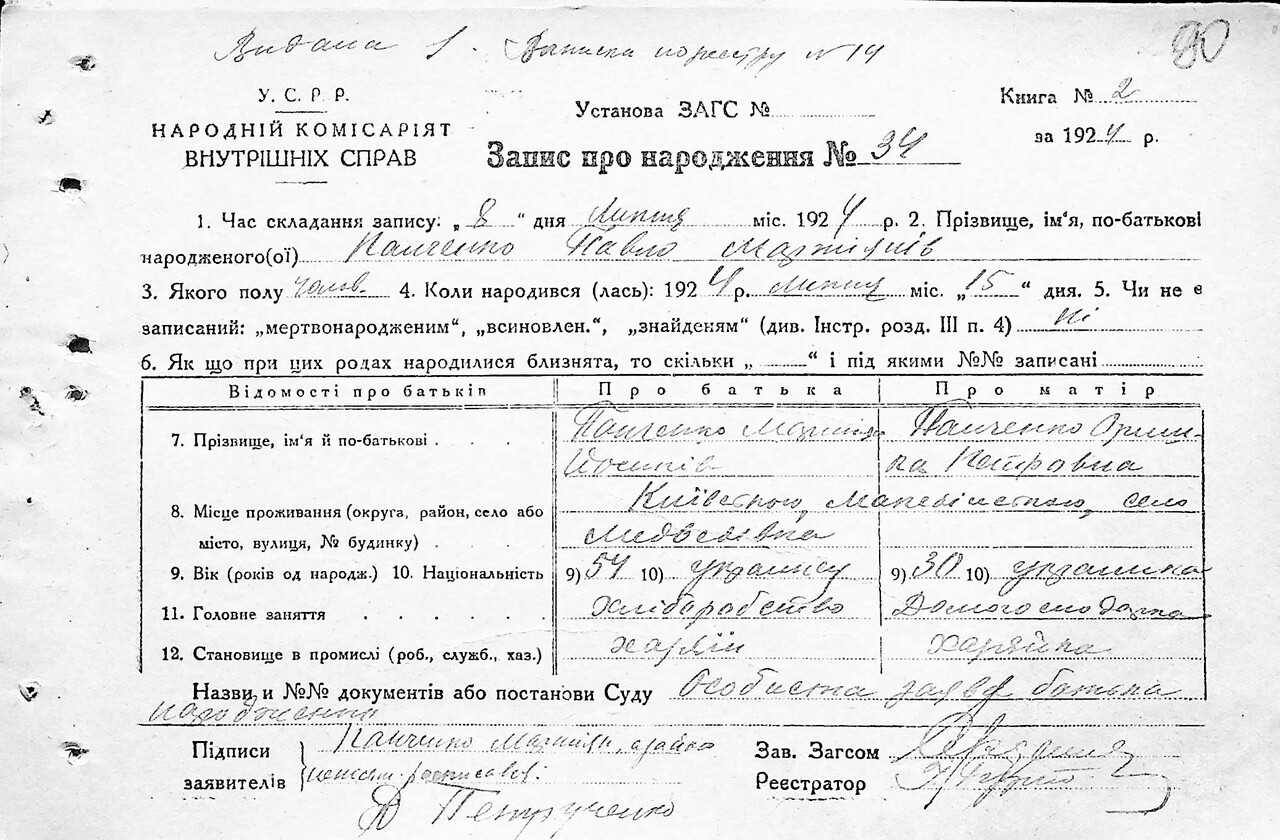 Видана 1. Виписка по реєстру № 14
90
У. С. Р. Р.
НАРОДНІЙ КОМІСАРІЯТ
ВНУТРІШНІХ СПРАВ
Установа ЗАГС №
Книга № 2
за 1924 р.
Запис про народження № 34
1. Час складання запису: „8“ дня Липця міс. 1924 р. 2. Прізвище, ім'я, по-батькові
народженого(ої) Панченко Павло Мартинів
3. Якого полу чолов. 4. Коли народився (лась): 1924 р. липця міс. „15“ дня. 5. Чи не є
записаний: „мертвонародженим“, „всиновлен.“, „знайденям“ (див. Інстр. розд. III п. 4) Ні
6. Як що при цих родах народилися близнята, то скільки „ “ і під якими №№ записані
Відомості про батьків Про батька Про матір
7. Прізвище, ім'я й по-батькові . . . . Панченко Панченко Орин-
Йосипів ка Петровна
8. Місце проживання (округа, район, село або Київської, село
місто, вулиця, № будинку) . . . . Медведівка
9. Вік (років од народж.) 10. Національність 9) 54 10) українець 9) 30 10) українка
11. Головне заняття . . . . . . Хліборобство Домогосподарка
12. Становище в промислі (роб., служб., хаз.) хазяїн хазяйка
Назви и №№ документів або постанови Суду Особиста заява батька
народження
Підписи заявителів Панченко
Петрученко
Зав. Загсом
Реєстратор